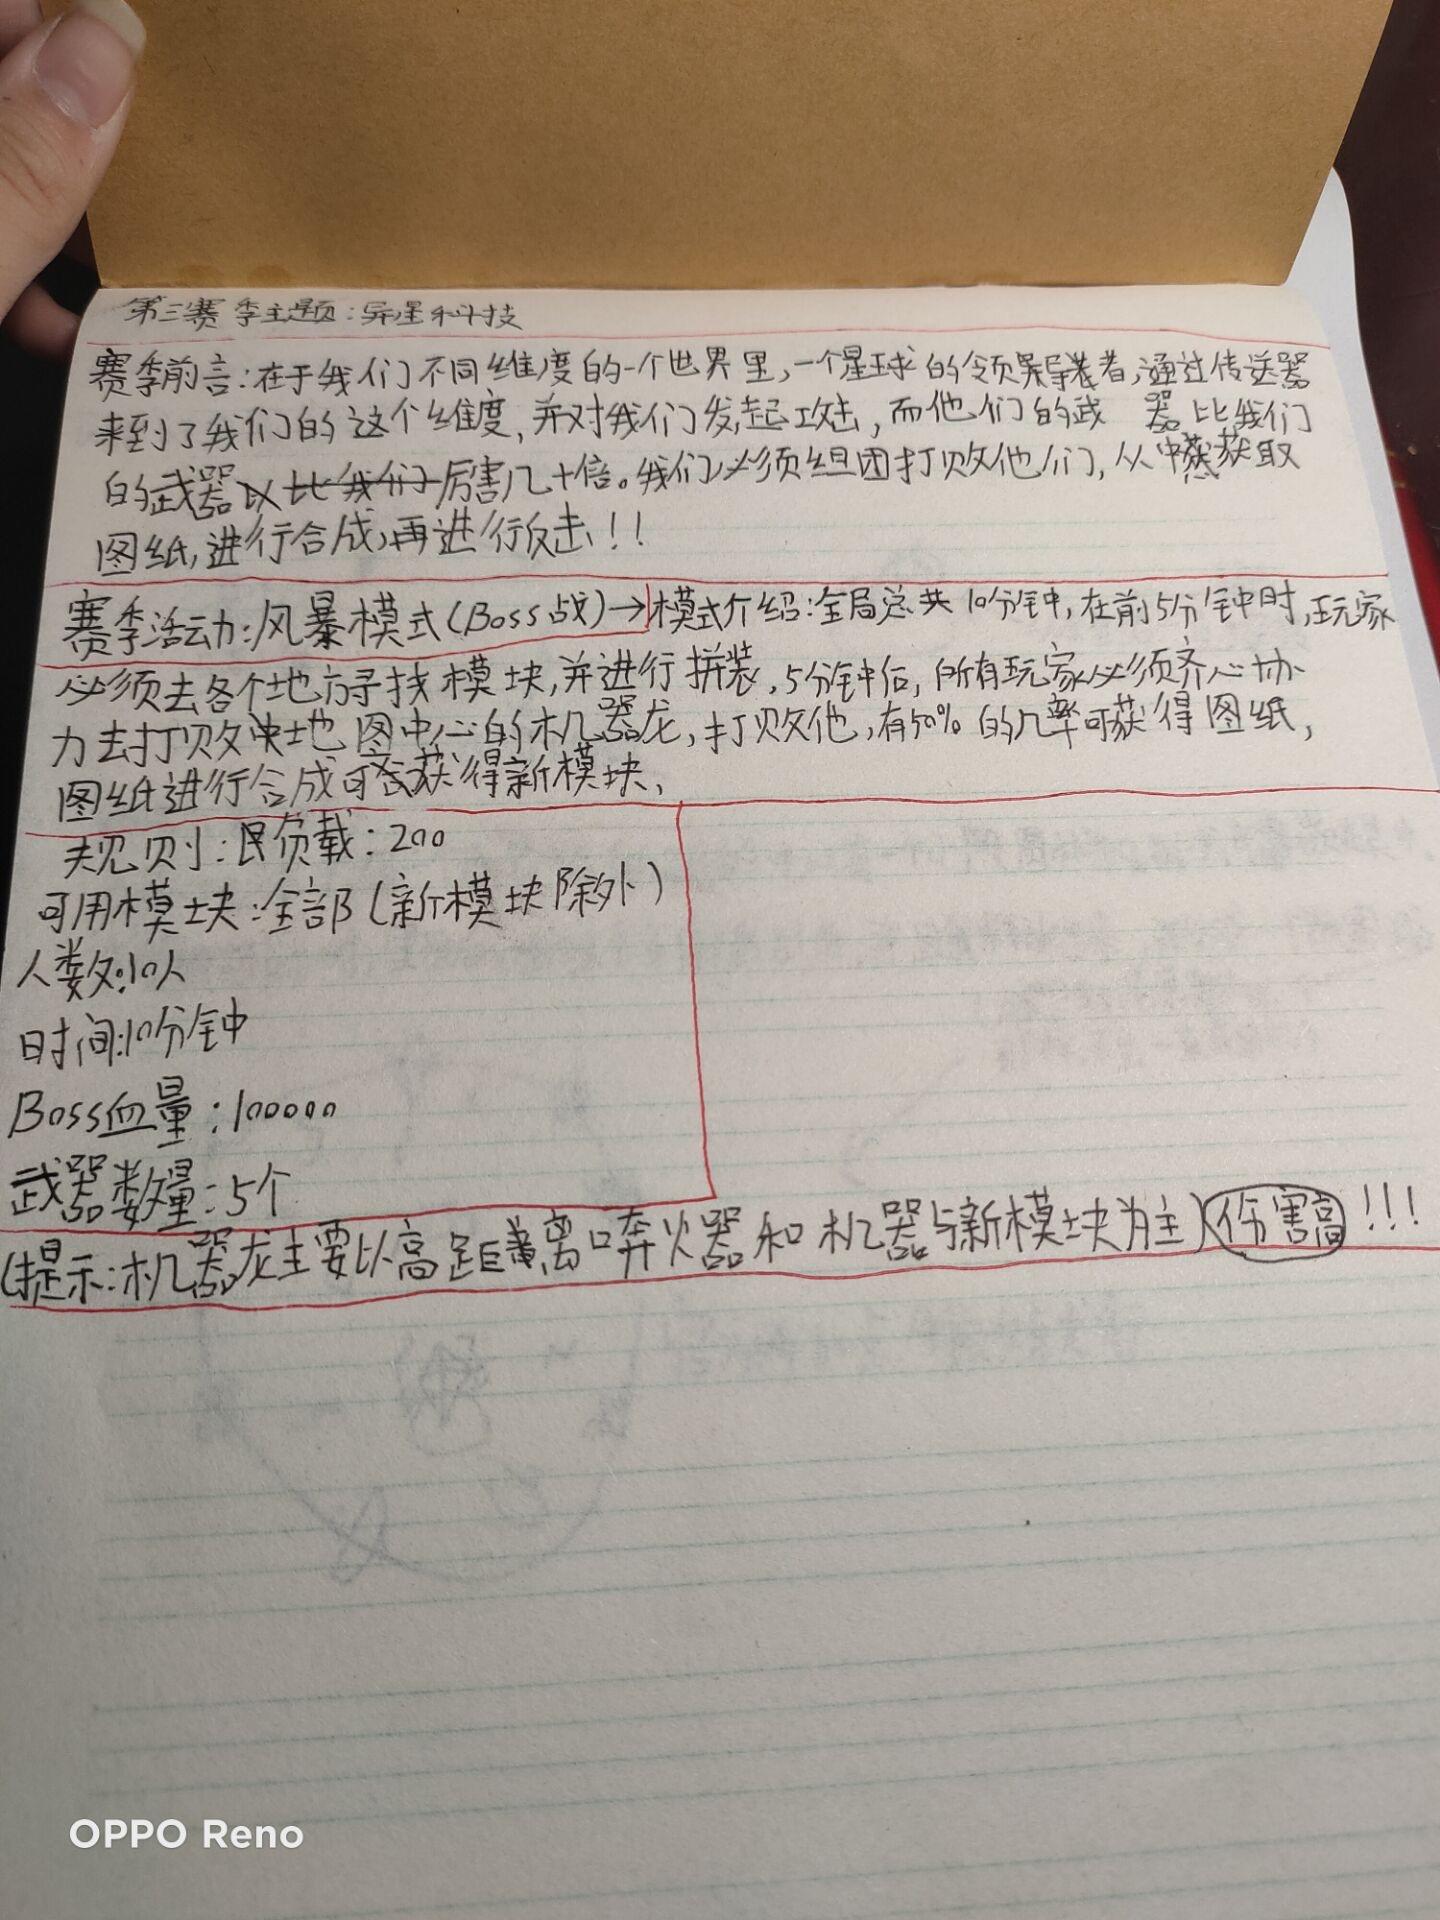 第三赛季主题：异星科技
赛季前言：在于我们不同维度的一个世界里，一个星球的领导者，通过传送器
来到了我们的这个维度，并对我们发起攻击，而他们的武 器比我们
的武器厉害几十倍。我们必须组团打败他们，从中获取
图纸，进行合成，再进行反击！！
赛季活动：风暴模式（Boss战）→模式介绍：全局总共10分钟，在前5分钟时，玩家
必须去各个地方寻找模块，并进行拼装，5分钟后，所有玩家必须齐心协
力去打败地图中心的机器龙，打败他，有50%的几率可获得图纸，
图纸进行合成可获得新模块，
规则：负载：200
可用模块：全部（新模块除外）
人数：10人
时间：10分钟
Boss血量：100000
武器数量：5个
（提示：机器龙主要以高距离喷火器和机器与新模块为主）伤害高！！！
OPPO Reno